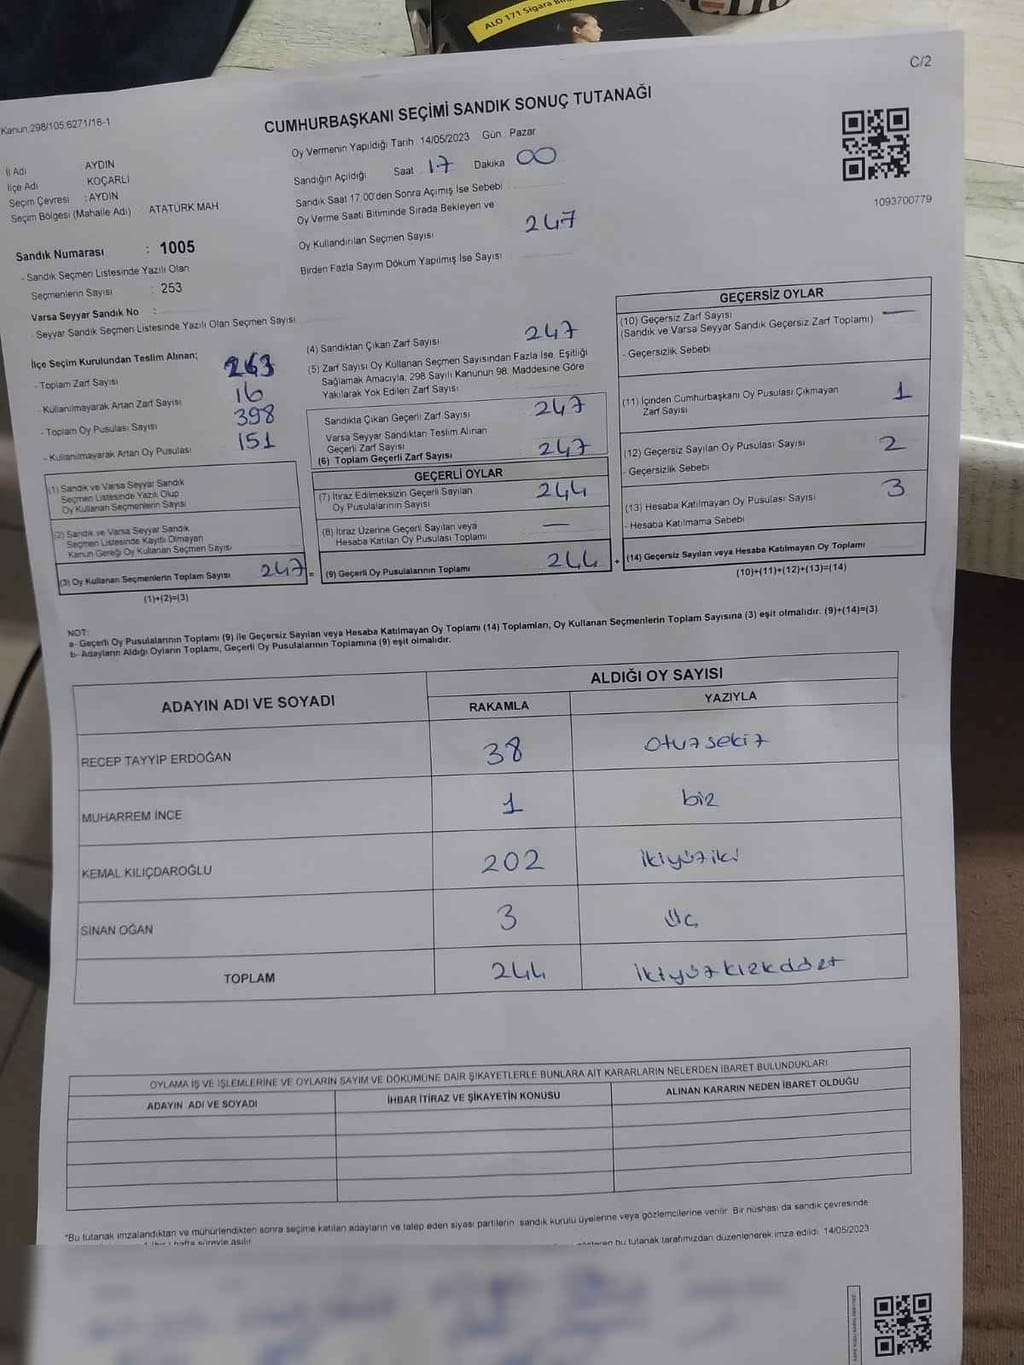 ALO 171 Sigara
C/2
Kanun:298/105;6271/18-1
CUMHURBAŞKANI SEÇİMİ SANDIK SONUÇ TUTANAĞI
İl Adı AYDIN
İlçe Adı KOÇARLI
Seçim Çevresi : AYDIN
Seçim Bölgesi (Mahalle Adı) ATATÜRK MAH.
Sandık Numarası : 1005
- Sandık Seçmen Listesinde Yazılı Olan
Seçmenlerin Sayısı : 253
Varsa Seyyar Sandık No :
- Seyyar Sandık Seçmen Listesinde Yazılı Olan Seçmen Sayısı
Oy Vermenin Yapıldığı Tarih : 14/05/2023 Gün : Pazar
Sandığın Açıldığı Saat 17 Dakika 00
Sandık Saat 17:00'den Sonra Açımış İse Sebebi
Oy Verme Saati Bitiminde Sırada Bekleyen ve
Oy Kullandırılan Seçmen Sayısı 247
Birden Fazla Sayım Döküm Yapılmış İse Sayısı
1093700779
İlçe Seçim Kurulundan Teslim Alınan;
- Toplam Zarf Sayısı 263
- Kullanılmayarak Artan Zarf Sayısı 16
- Toplam Oy Pusulası Sayısı 398
- Kullanılmayarak Artan Oy Pusulası 151
(1) Sandık ve Varsa Seyyar Sandık
Seçmen Listesinde Yazılı Olup
Oy Kullanan Seçmenlerin Sayısı
(2) Sandık ve Varsa Seyyar Sandık
Seçmen Listesinde Kayıtlı Olmayan
Kanun Gereği Oy Kullanan Seçmen Sayısı
(3) Oy Kullanan Seçmenlerin Toplam Sayısı 247 =
(1)+(2)=(3)
(4) Sandıktan Çıkan Zarf Sayısı 247
(5) Zarf Sayısı Oy Kullanan Seçmen Sayısından Fazla İse, Eşitliği
Sağlamak Amacıyla, 298 Sayılı Kanunun 98. Maddesine Göre
Yakılarak Yok Edilen Zarf Sayısı
Sandıkta Çıkan Geçerli Zarf Sayısı 247
Varsa Seyyar Sandıktan Teslim Alınan
Geçerli Zarf Sayısı
(6) Toplam Geçerli Zarf Sayısı 247
GEÇERLİ OYLAR
(7) İtiraz Edilmeksizin Geçerli Sayılan
Oy Pusulalarının Sayısı 244
(8) İtiraz Üzerine Geçerli Sayılan veya
Hesaba Katılan Oy Pusulası Toplamı —
(9) Geçerli Oy Pusulalarının Toplamı 244 +
GEÇERSİZ OYLAR
(10) Geçersiz Zarf Sayısı —
(Sandık ve Varsa Seyyar Sandık Geçersiz Zarf Toplamı)
- Geçersizlik Sebebi
(11) İçinden Cumhurbaşkanı Oy Pusulası Çıkmayan
Zarf Sayısı 1
(12) Geçersiz Sayılan Oy Pusulası Sayısı 2
- Geçersizlik Sebebi
(13) Hesaba Katılmayan Oy Pusulası Sayısı 3
- Hesaba Katılmama Sebebi
(14) Geçersiz Sayılan veya Hesaba Katılmayan Oy Toplamı
(10)+(11)+(12)+(13)=(14)
NOT:
a- Geçerli Oy Pusulalarının Toplamı (9) ile Geçersiz Sayılan veya Hesaba Katılmayan Oy Toplamı (14) Toplamları, Oy Kullanan Seçmenlerin Toplam Sayısına (3) eşit olmalıdır. (9)+(14)=(3)
b- Adayların Aldığı Oyların Toplamı, Geçerli Oy Pusulalarının Toplamına (9) eşit olmalıdır.
ADAYIN ADI VE SOYADI ALDIĞI OY SAYISI
RAKAMLA YAZIYLA
RECEP TAYYİP ERDOĞAN 38 otuzsekiz
MUHARREM İNCE 1 bir
KEMAL KILIÇDAROĞLU 202 ikiyüziki
SİNAN OĞAN 3 üç
TOPLAM 244 ikiyüzkırkdört
OYLAMA İŞ VE İŞLEMLERİNE VE OYLARIN SAYIM VE DÖKÜMÜNE DAİR ŞİKAYETLERLE BUNLARA AİT KARARLARIN NELERDEN İBARET BULUNDUKLARI
ADAYIN ADI VE SOYADI İHBAR İTİRAZ VE ŞİKAYETİN KONUSU ALINAN KARARIN NEDEN İBARET OLDUĞU
*Bu tutanak imzalandıktan ve mühürlendikten sonra seçime katılan adayların ve talep eden siyasi partilerin sandık kurulu üyelerine veya gözlemcilerine verilir. Bir nüshası da sandık çevresinde
hafta süreyle asılır. bu tutanak tarafımızdan düzenlenerek imza edildi. 14/05/2023